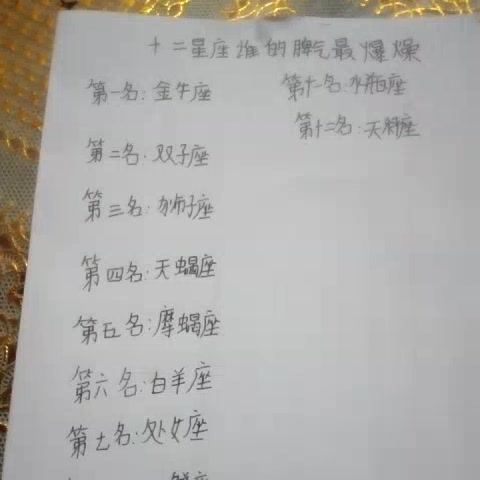 十二星座谁的脾气最爆燥
第一名:金牛座
第二名:双子座
第三名:狮子座
第四名:天蝎座
第五名:摩蝎座
第六名:白羊座
第七名:处女座
座
第十一名:水瓶座
第十二名:天秤座